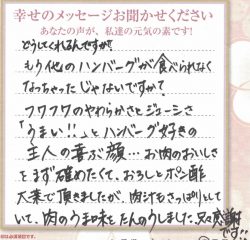 幸せのメッセージお聞かせください
あなたの声が、私達の元気の素です!
どうしてくれるんですか?
もう他のハンバーグが食べられなく
なっちゃったじゃないですか?
フワフワのやわらかさとジューシさ
「うまい!!」とハンバーグ好きの
主人の喜ぶ顔… お肉のおいしさ
をまず確めたくて、おろしとポン酢
大葉で頂きましたが、肉汁もさっぱりとして
いて、肉のうま味をたんのうしました。又々感謝
です!!